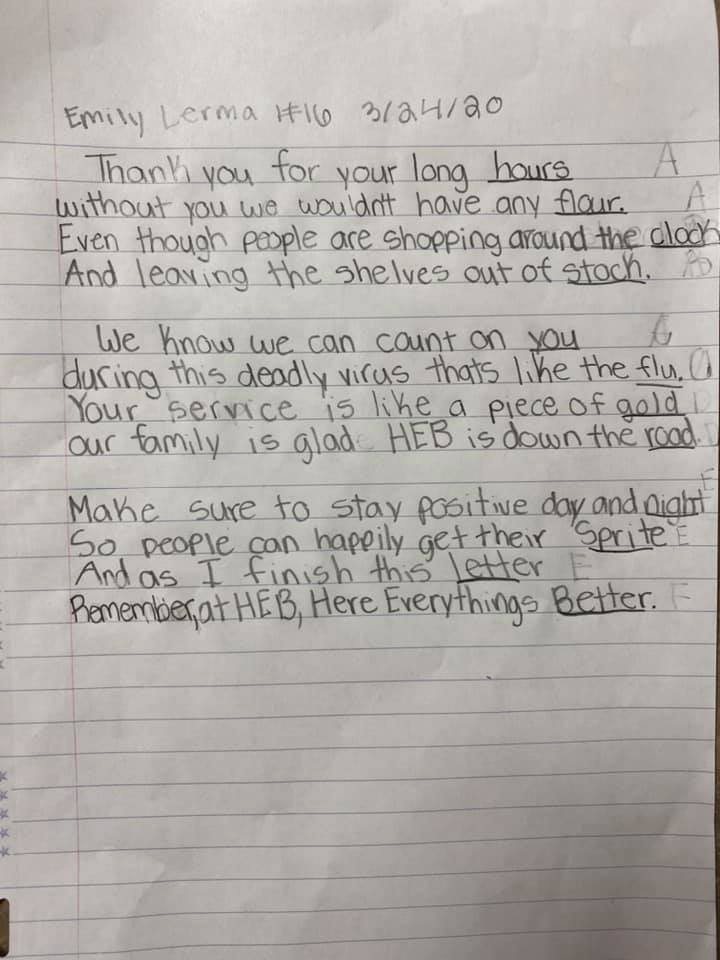 Emily Lerma #16 3/24/20
Thank you for your long hours A
without you we wouldn't have any flour. A
Even though people are shopping around the clock
And leaving the shelves out of stock. B
We know we can count on you C
during this deadly virus thats like the flu. C
Your service is like a piece of gold D
our family is glad HEB is down the road.
Make sure to stay positive day and night E
So people can happily get their Sprite E
And as I finish this letter F
Remember, at HEB, Here Everythings Better. F